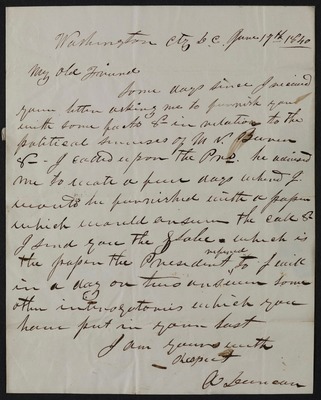 Washington Cty D.C. June 19th 1840
My Old Friend
Some days since I received
your letter asking me to furnish you
with some facts & in relation to the
political course of M V. Buren
&- I called upon the Pres. he advised
me to wait a few days when I
would be furnished with a paper
which would answer the call &
I send you the Globe. which is
the paper the President referred to I will
in a day or two answer some
other interogatories which you
have put in your last
I am yours with
respect
A Duncan